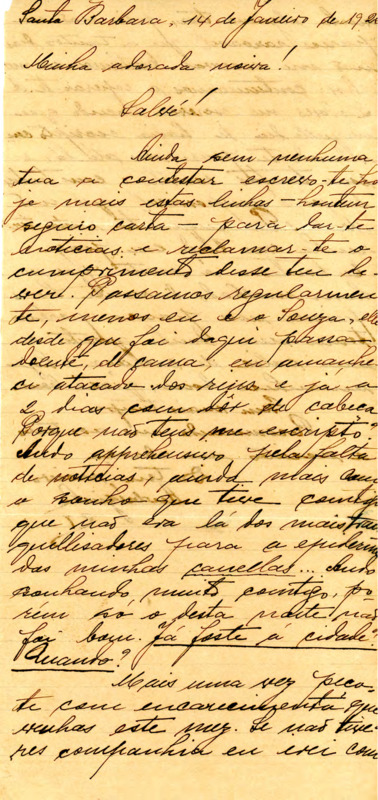 Santa Barbara, 14 de Janeiro de 192
Minha adorada noiva!
Salvé!
Ainda sem nenhuma
tua a contestar escrevo-te ho
je mais estas linhas – hontem
seguio carta – para dar-te
noticias e reclamar-te o
cumprimento desse teu de
ver. Passamos regularmen
te, menos eu e o Souza, elle
desde que foi daqui passa
doente, de cama, eu amanhe
ci atacado dos rins e já a
2 dias com dôr de cabeça
Porque não tens me escripto?
Ando apprehensivo pela falta
de noticias, ainda mais com
o sonho que tive comtigo
que não era lá dos mais tran
quillisadores para a epiderme
das minhas canellas... Ando
sonhando muito comtigo, po
rém só o desta noite não
foi bom. Já foste á cidade?
Quando?
Mais uma vez peço-
te com encarecimento que
venhas este mez. Se não tive
res companhia eu irei com